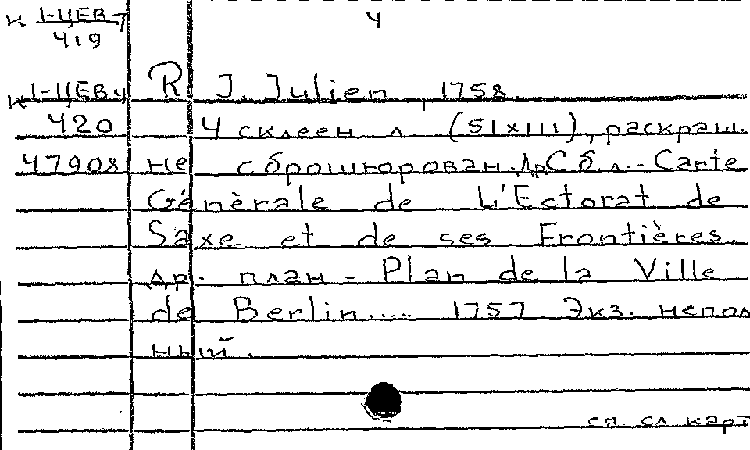 к 1-ЦЕВ-7
419
4
к 1-ЦЕВ4 R J. Julien, 1758.
420 4 склеен л (51х111), раскраш.
47908 не сброшюрован. Др. Сб. л.- Carte
Génèrale de L'Ectorat de
Saxe et de ses Frontières.
др. план - Plan de la Ville
de Berlin.... 1757 Экз. непол
ный.
сл. карт